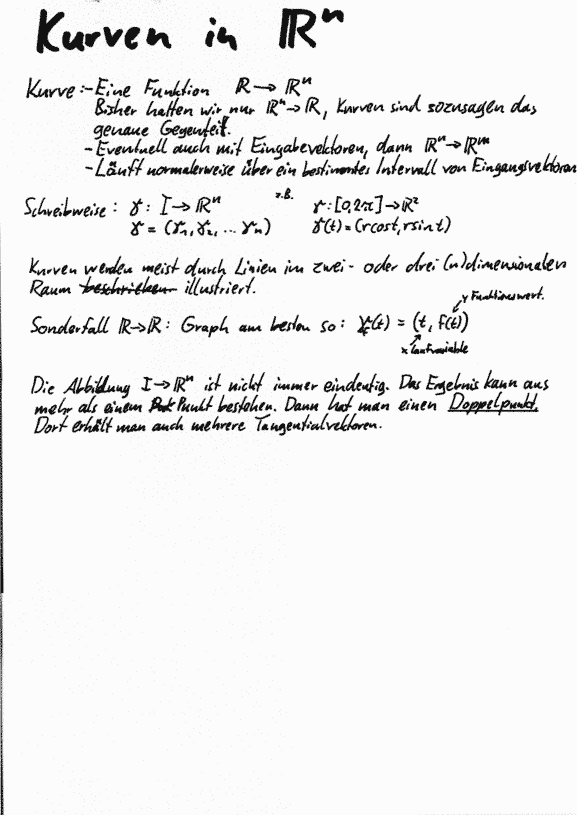 Kurven in ℝⁿ
Kurve: - Eine Funktion ℝ → ℝⁿ
Bisher hatten wir nur ℝⁿ → ℝ, Kurven sind sozusagen das
genaue Gegenteil.
- Eventuell auch mit Eingabevektoren, dann ℝⁿ → ℝᵐ
- Läuft normalerweise über ein bestimmtes Intervall von Eingangsvektoren
Schreibweise: γ: I → ℝⁿ z.B. γ: [0,2π] → ℝ²
γ = (γ₁, γ₂, ... γₙ) γ(t) = (r cos t, r sin t)
Kurven werden meist durch Linien im zwei- oder drei (n)dimensionalen
Raum beschrieben illustriert.
y Funktionswert.
Sonderfall ℝ→ℝ: Graph am besten so: γ(t) = (t, f(t))
x Laufvariable
Die Abbildung I → ℝⁿ ist nicht immer eindeutig. Das Ergebnis kann aus
mehr als einem Punkt bestehen. Dann hat man einen Doppelpunkt.
Dort erhält man auch mehrere Tangentialvektoren.